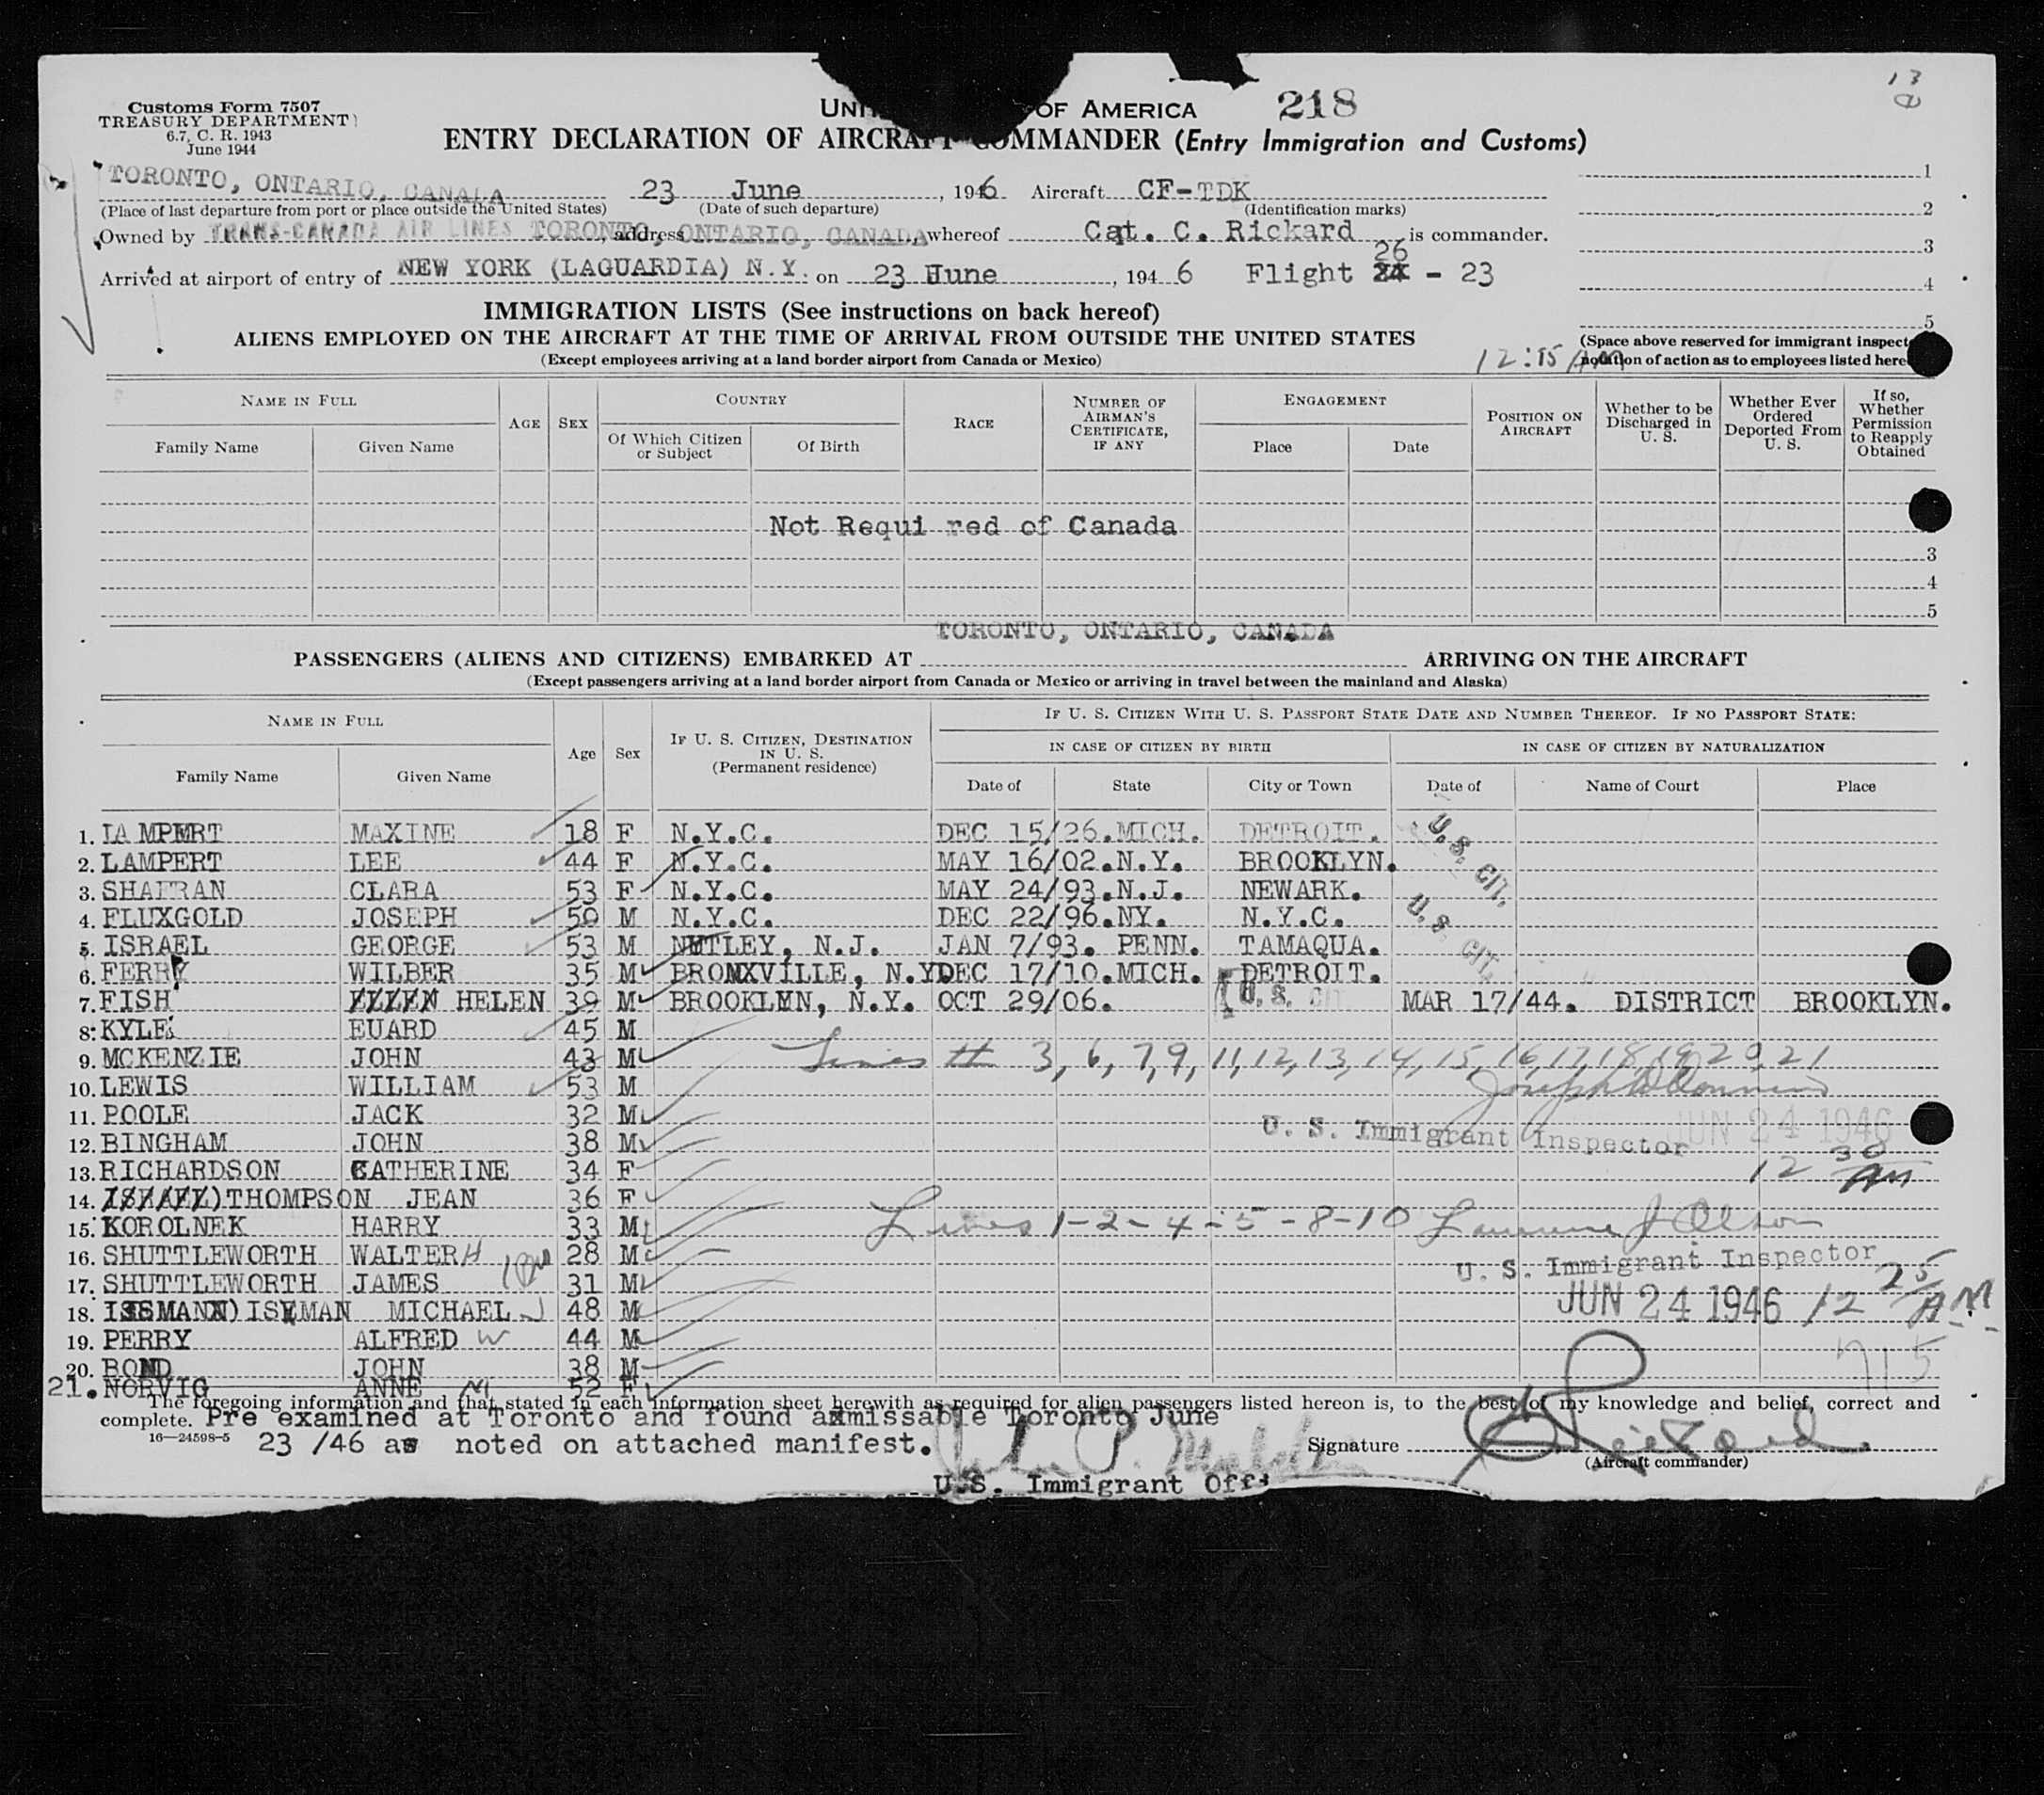 13
Customs Form 7507
TREASURY DEPARTMENT
6.7, C. R. 1943
June 1944
OF AMERICA 218
ENTRY DECLARATION OF AIRCRAFT COMMANDER (Entry Immigration and Customs)
TORONTO, ONTARIO, CANADA 23 June, 1946 Aircraft CF-TDK
(Place of last departure from port or place outside the United States) (Date of such departure) (Identification marks)
Owned by TRANS-CANADA AIR LINES TORONTO, address ONTARIO, CANADA, whereof Cat. C. Rickard is commander.
Arrived at airport of entry of NEW YORK (LAGUARDIA) N.Y. on 23 June, 194 6 Flight 26 - 23
1
2
3
4
5
IMMIGRATION LISTS (See instructions on back hereof)
ALIENS EMPLOYED ON THE AIRCRAFT AT THE TIME OF ARRIVAL FROM OUTSIDE THE UNITED STATES
(Except employees arriving at a land border airport from Canada or Mexico)
(Space above reserved for immigrant
notation of action as to employees listed
12:15 AM
NAME IN FULL
Family Name Given Name
AGE SEX
COUNTRY
Of Which Citizen or Subject Of Birth
RACE
NUMBER OF AIRMAN'S CERTIFICATE, IF ANY
ENGAGEMENT
Place Date
POSITION ON AIRCRAFT
Whether to be Discharged in U. S.
Whether Ever Ordered Deported From U. S.
If so, Whether Permission to Reapply Obtained
Not Requi red of Canada
3
4
5
TORONTO, ONTARIO, CANADA
PASSENGERS (ALIENS AND CITIZENS) EMBARKED AT ARRIVING ON THE AIRCRAFT
(Except passengers arriving at a land border airport from Canada or Mexico or arriving in travel between the mainland and Alaska)
NAME IN FULL
Family Name Given Name
Age Sex
IF U. S. CITIZEN, DESTINATION IN U. S. (Permanent residence)
IF U. S. CITIZEN WITH U. S. PASSPORT STATE DATE AND NUMBER THEREOF. IF NO PASSPORT STATE:
IN CASE OF CITIZEN BY BIRTH IN CASE OF CITIZEN BY NATURALIZATION
Date of State City or Town Date of Name of Court Place
1. LAMPERT MAXINE 18 F N.Y.C. DEC 15/26. MICH. DETROIT. U.S. CIT.
2. LAMPERT LEE 44 F N.Y.C. MAY 16/02. N.Y. BROOKLYN.
3. SHAFRAN CLARA 53 F N.Y.C. MAY 24/93. N.J. NEWARK.
4. FLUXGOLD JOSEPH 50 M N.Y.C. DEC 22/96. NY. N.Y.C. U.S. CIT.
5. ISRAEL GEORGE 53 M NUTLEY, N.J. JAN 7/93. PENN. TAMAQUA.
6. FERRY WILBER 35 M BRONXVILLE, N.Y. DEC 17/10. MICH. DETROIT.
7. FISH HELEN 39 M BROOKLYN, N.Y. OCT 29/06. U.S. MAR 17/44. DISTRICT BROOKLYN.
8. KYLE EUARD 45 M
9. MCKENZIE JOHN 43 M Lines 3, 6, 7, 9, 11, 12, 13, 14, 15, 16, 17, 18, 19, 20, 21
10. LEWIS WILLIAM 53 M
11. POOLE JACK 32 M U. S. Immigrant Inspector JUN 24 1946
12. BINGHAM JOHN 38 M
13. RICHARDSON CATHERINE 34 F 12 30 AM
14. THOMPSON JEAN 36 F
15. KOROLNEK HARRY 33 M Lines 1-2-4-5-8-10 Lawrence J Olson
16. SHUTTLEWORTH WALTER H 28 M U. S. Immigrant Inspector
17. SHUTTLEWORTH JAMES 31 M JUN 24 1946 12 25 A.M.
18. ISEMAN MICHAEL J 48 M
19. PERRY ALFRED W 44 M 715
20. BOND JOHN 38 M
21. NORVIG ANNE M 52 F
The foregoing information and that stated in each information sheet herewith as required for alien passengers listed hereon is, to the best of my knowledge and belief, correct and
complete. Pre examined at Toronto and found admissable Toronto June
16—24598-5 23 /46 as noted on attached manifest. Signature C Rickard
(Aircraft commander)
U.S. Immigrant